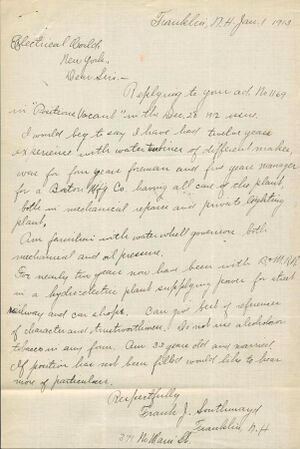 Franklin, N.H Jan. 1 1913
Electrical World,
New York.
Dear Sirs:-
Replying to your ad. No 1169
in "Positions Vacant" in the Dec. 28 1912 issue.
I would beg to say I have had twelve years
experience with water turbines of different makes,
was for four years foreman and five years manager
for a Boston Mfg Co. having all care of the plant,
both in mechanical repairs and private lighting
plant.
Am familiar with waterwheel governors both
mechanical and oil pressure.
For nearly two years now have been with B & M. R.R.
in a hydro-electric plant supplying power for street
railway and car shops. Can give best of references
of character and trustworthiness. Do not use alcohol or
tobacco in any form. Am 33 years old and married.
If position has not been filled would like to hear
more of particulars.
Respectfully
Frank J. Southmayd
Franklin, N.H
371 No Main St.